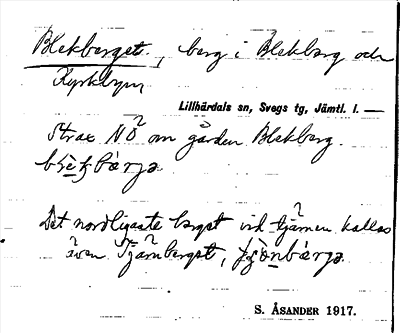 Blekberget., berg i Blekberg och
Kyrkbyn
Lillhärdals sn, Svegs tg, Jämtl. l.
Strax NÖ om gården Blekberg.
Det nordligaste berget vid tjärnen kallas
även Tjärnberget,
S. ÅSANDER 1917.